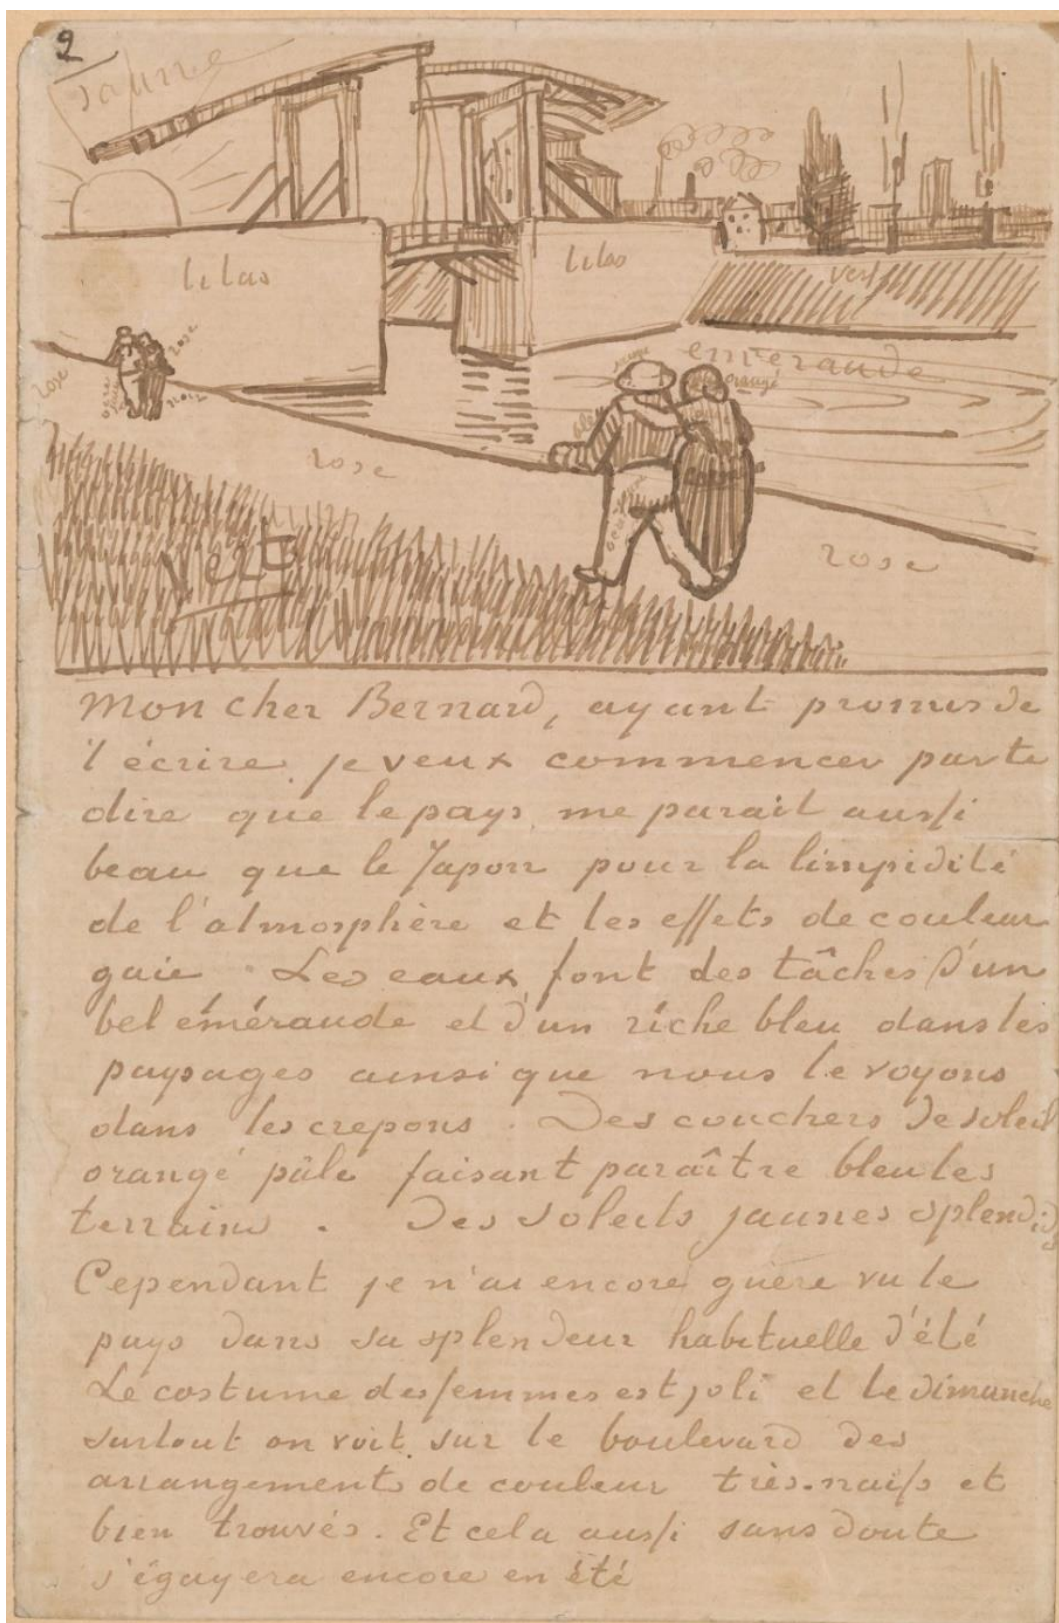 2
jaune
lilas
lilas
vert
emeraude
rose
rose
orangé
rose
noir
rose
rose
vert
Mon cher Bernard, ayant promis de
t'écrire je veux commencer par te
dire que le pays me parait aussi
beau que le Japon pour la limpidité
de l'atmosphère et les effets de couleur
gaie. Les eaux font des tâches d'un
bel éméraude et d'un riche bleu dans les
paysages ainsi que nous le voyons
dans les crepons. Des couchers de soleil
orangé pâle faisant paraître bleu les
terrains. Des soleils jaunes splendides
Cependant je n'ai encore guère vu le
pays dans sa splendeur habituelle d'été
Le costume des femmes est joli et le dimanche
surtout on voit sur le boulevard des
arrangements de couleur très-naifs et
bien trouvés. Et cela aussi sans doute
s'égayera encore en été